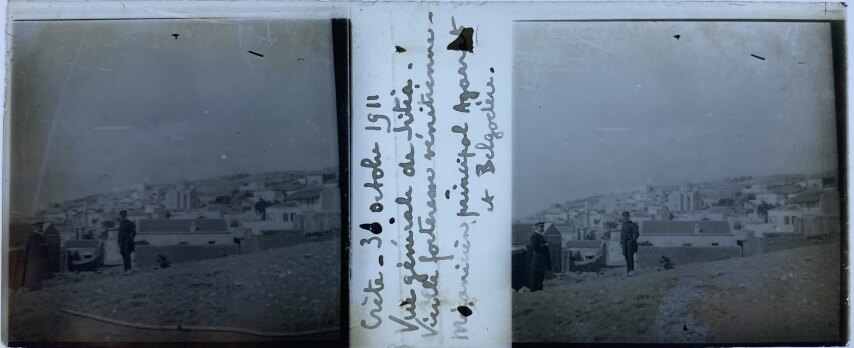 Crète - 31 octobre 1911
Vue générale de Sitia.
Vieille forteresse vénitienne.
Mécanicien principal
et Belgodère.